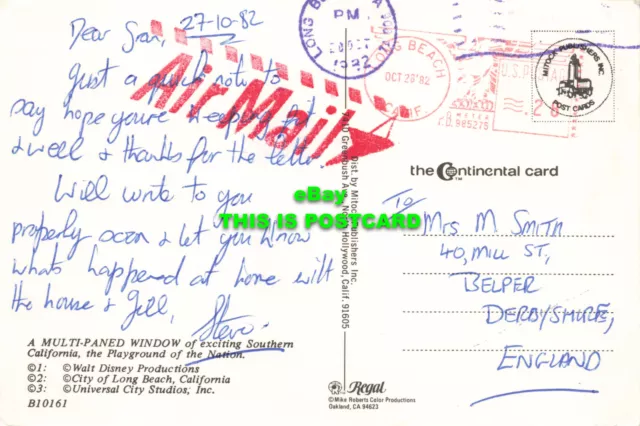 27-10-82
Dear Gran,
Just a quick note to
say hope you're keeping fit
& well & thanks for the letter.
Will write to you
properly soon & let you know
whats happened at home with
the house & Gill,
Steve.
Air Mail
LONG BEACH
PM
1982
LONG BEACH
OCT 28'82
CALIF.
METER
985275
U.S. POSTAGE
.28
MITOCK PUBLISHERS INC.
POST CARDS
the Continental card
TM
To
Mrs M Smith
40, MILL ST,
BELPER
DERBYSHIRE,
ENGLAND
Dist. by Mitock Publishers Inc.
Greenbush Ave. North Hollywood, Calif. 91605
eBay
THIS IS POSTCARD
A MULTI-PANED WINDOW of exciting Southern
California, the Playground of the Nation.
©1: ©Walt Disney Productions
©2: ©City of Long Beach, California
©3: ©Universal City Studios, Inc.
B10161
Regal
©Mike Roberts Color Productions
Oakland, CA 94623